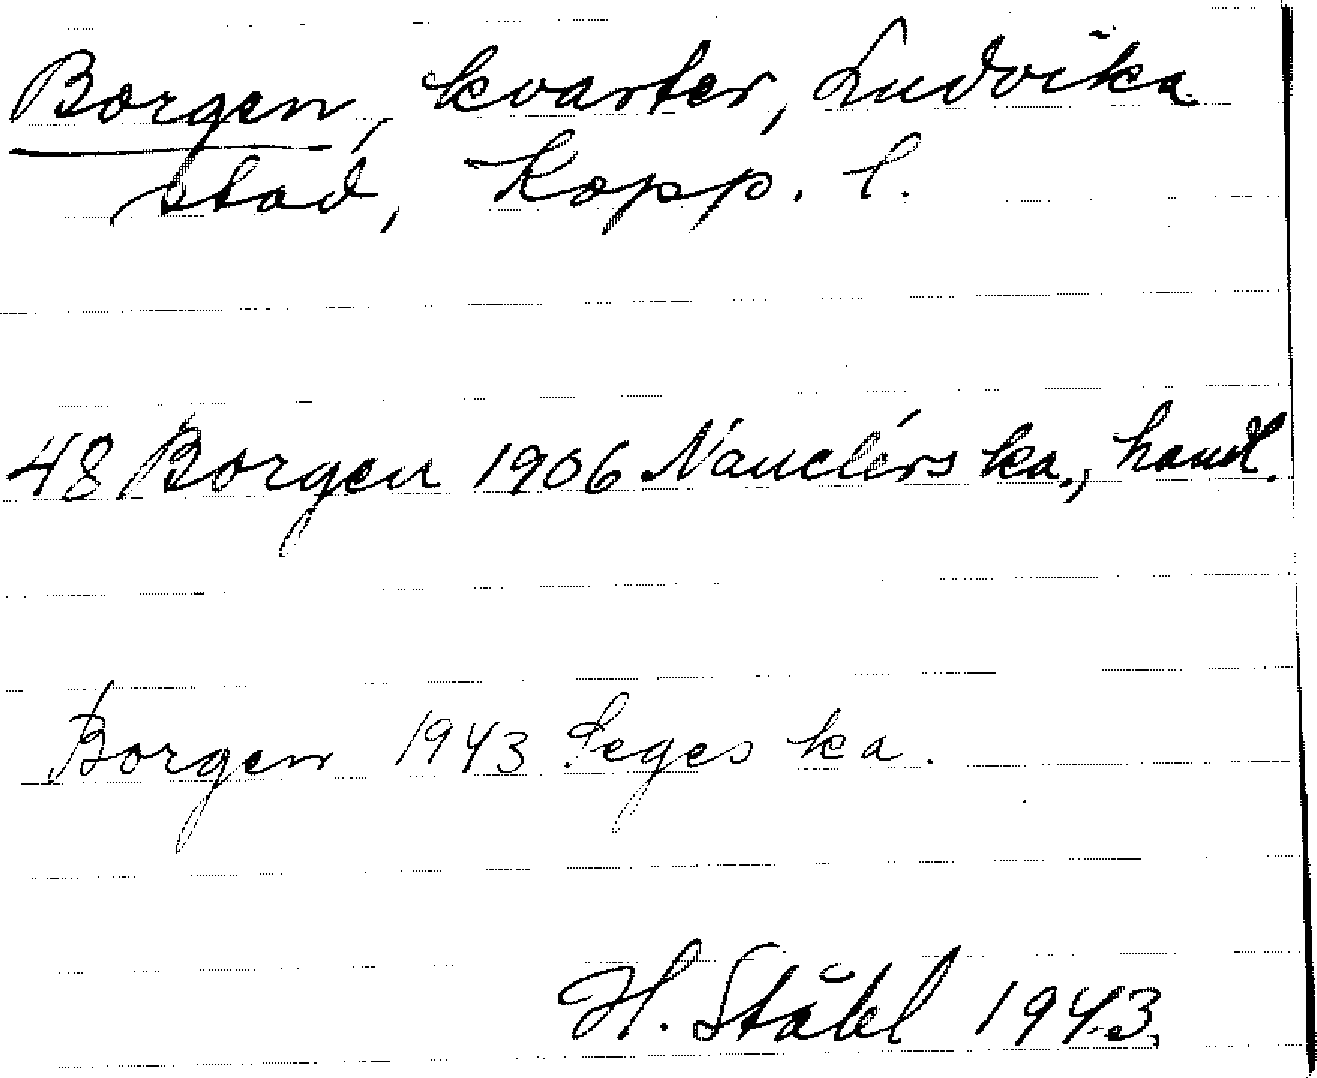 Borgen, kvarter, Ludvika
stad, Kopp. l.
48 Borgen 1906 Nauclérs ka., handl.
Borgen 1943 Seges ka.
H. Ståhl 1943.